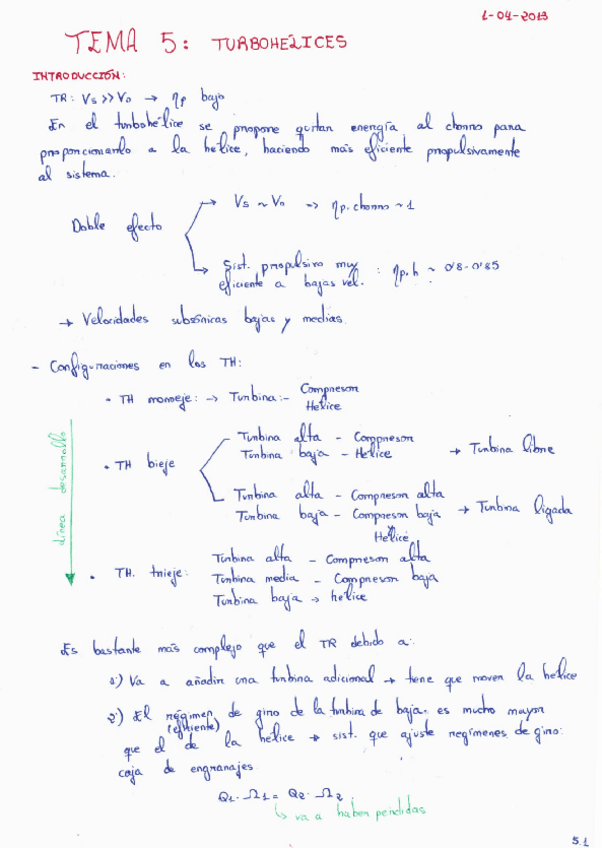 1-04-2013
TEMA 5: TURBOHÉLICES
INTRODUCCIÓN:
TR: Vs >> Vo → ηp bajo
En el turbohélice se propone quitar energía al chorro para
proporcionarlo a la hélice, haciendo más eficiente propulsivamente
al sistema.
Doble efecto
Vs ~ Vo => ηp.chorro ~ 1
Sist. propulsivo muy
eficiente a bajas vel. : ηp.h ~ 0'8-0'85
→ Velocidades subsónicas bajas y medias.
- Configuraciones en los TH:
• TH monoeje: → Turbina:- Compresor
Helice
línea desarrollo
• TH bieje
Turbina alta - Compresor
Turbina baja - Helice → Turbina libre
Turbina alta - Compresor alta
Turbina baja - Compresor baja → Turbina ligada
Helice
• TH. trieje:
Turbina alta - Compresor alta
Turbina media - Compresor baja
Turbina baja → helice
Es bastante más complejo que el TR debido a:
1.) Va a añadir una turbina adicional → tiene que mover la helice
2.) El régimen de giro de la turbina de baja. es mucho mayor
(eficiente)
que el de la helice → sist. que ajuste regímenes de giro:
caja de engranajes.
Q1·Ω1 = Q2·Ω2.
↳ va a haber pérdidas
5.1